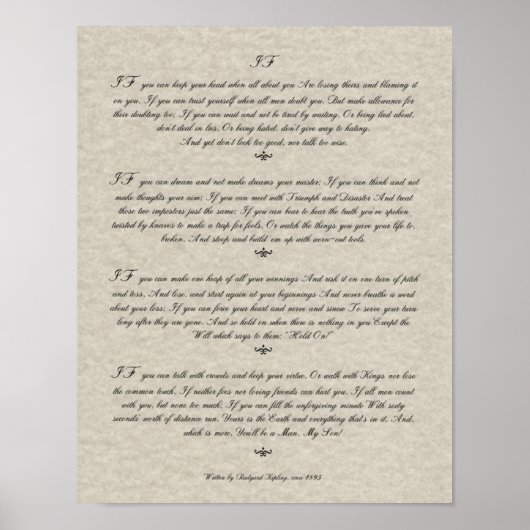 IF
IF you can keep your head when all about you Are losing theirs and blaming it
on you, If you can trust yourself when all men doubt you, But make allowance for
their doubting too; If you can wait and not be tired by waiting, Or being lied about,
don't deal in lies, Or being hated, don't give way to hating,
And yet don't look too good, nor talk too wise.
IF you can dream and not make dreams your master; If you can think and not
make thoughts your aim; If you can meet with Triumph and Disaster And treat
those two imposters just the same; If you can bear to hear the truth you've spoken
twisted by knaves to make a trap for fools, Or watch the things you gave your life to,
broken, And stoop and build 'em up with worn-out tools.
IF you can make one heap of all your winnings And risk it on one turn of pitch
and toss, And lose, and start again at your beginnings And never breathe a word
about your loss; If you can force your heart and nerve and sinew To serve your turn
long after they are gone, And so hold on when there is nothing in you Except the
Will which says to them; "Hold On!"
IF you can talk with crowds and keep your virtue, Or walk with Kings nor lose
the common touch, If neither foes nor loving friends can hurt you, If all men count
with you, but none too much; If you can fill the unforgiving minute With sixty
seconds' worth of distance run, Yours is the Earth and everything that's in it, And,
which is more, You'll be a Man, My Son!
Written by Rudyard Kipling, circa 1895